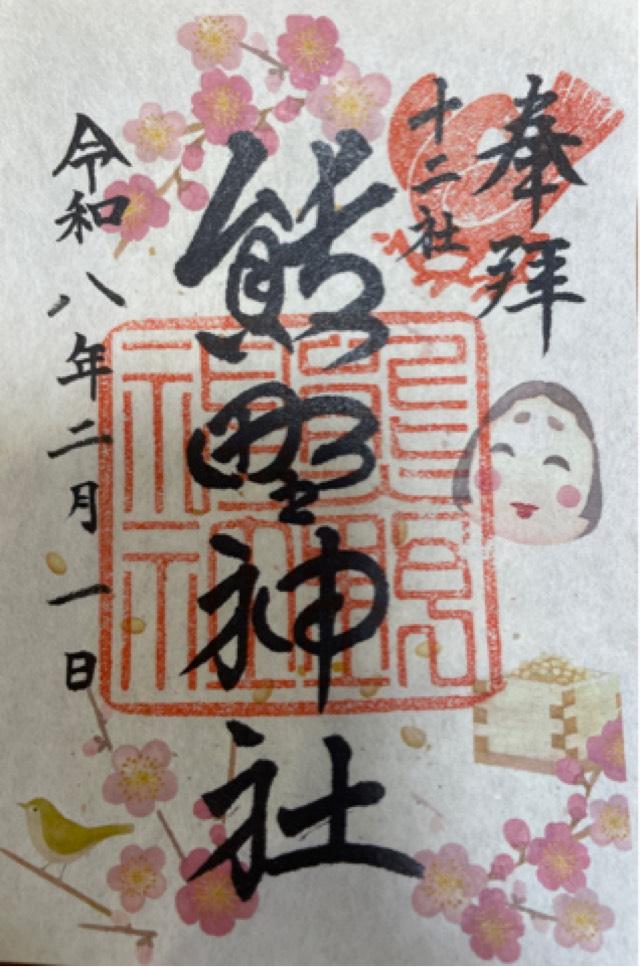 奉拝
十二社
熊野神社
令和八年二月一日